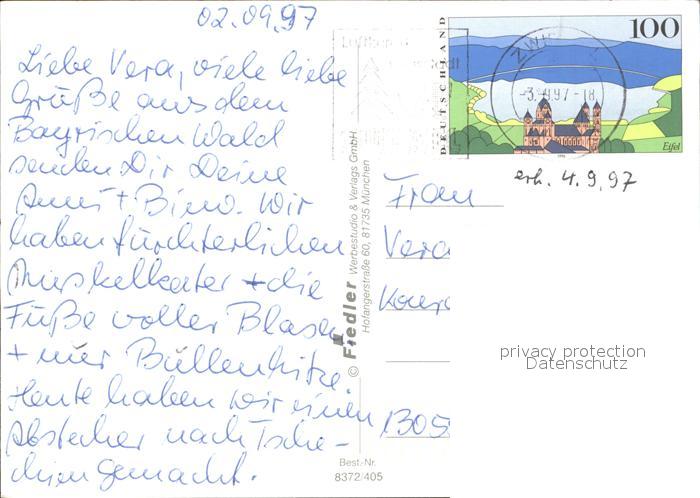 02.09.97
Liebe Vera, viele liebe
Grüße aus dem
Bayrischen Wald
senden Dir Deine
Anni + Bino. Wir
haben fürchterlichen
Muskelkater + die
Füße voller Blasen
+ nur Bullenhitze.
Heute haben wir einen
Abstecher nach Tsche-
chien gemacht.
© Fiedler Werbestudio & Verlags GmbH
Hofangerstraße 60, 81735 München
Best.-Nr.
8372/405
DEUTSCHLAND
100
Eifel
1996
ZW
-3.-9.97-18
erh. 4.9.97
Frau
Vera
1305
privacy protection
Datenschutz